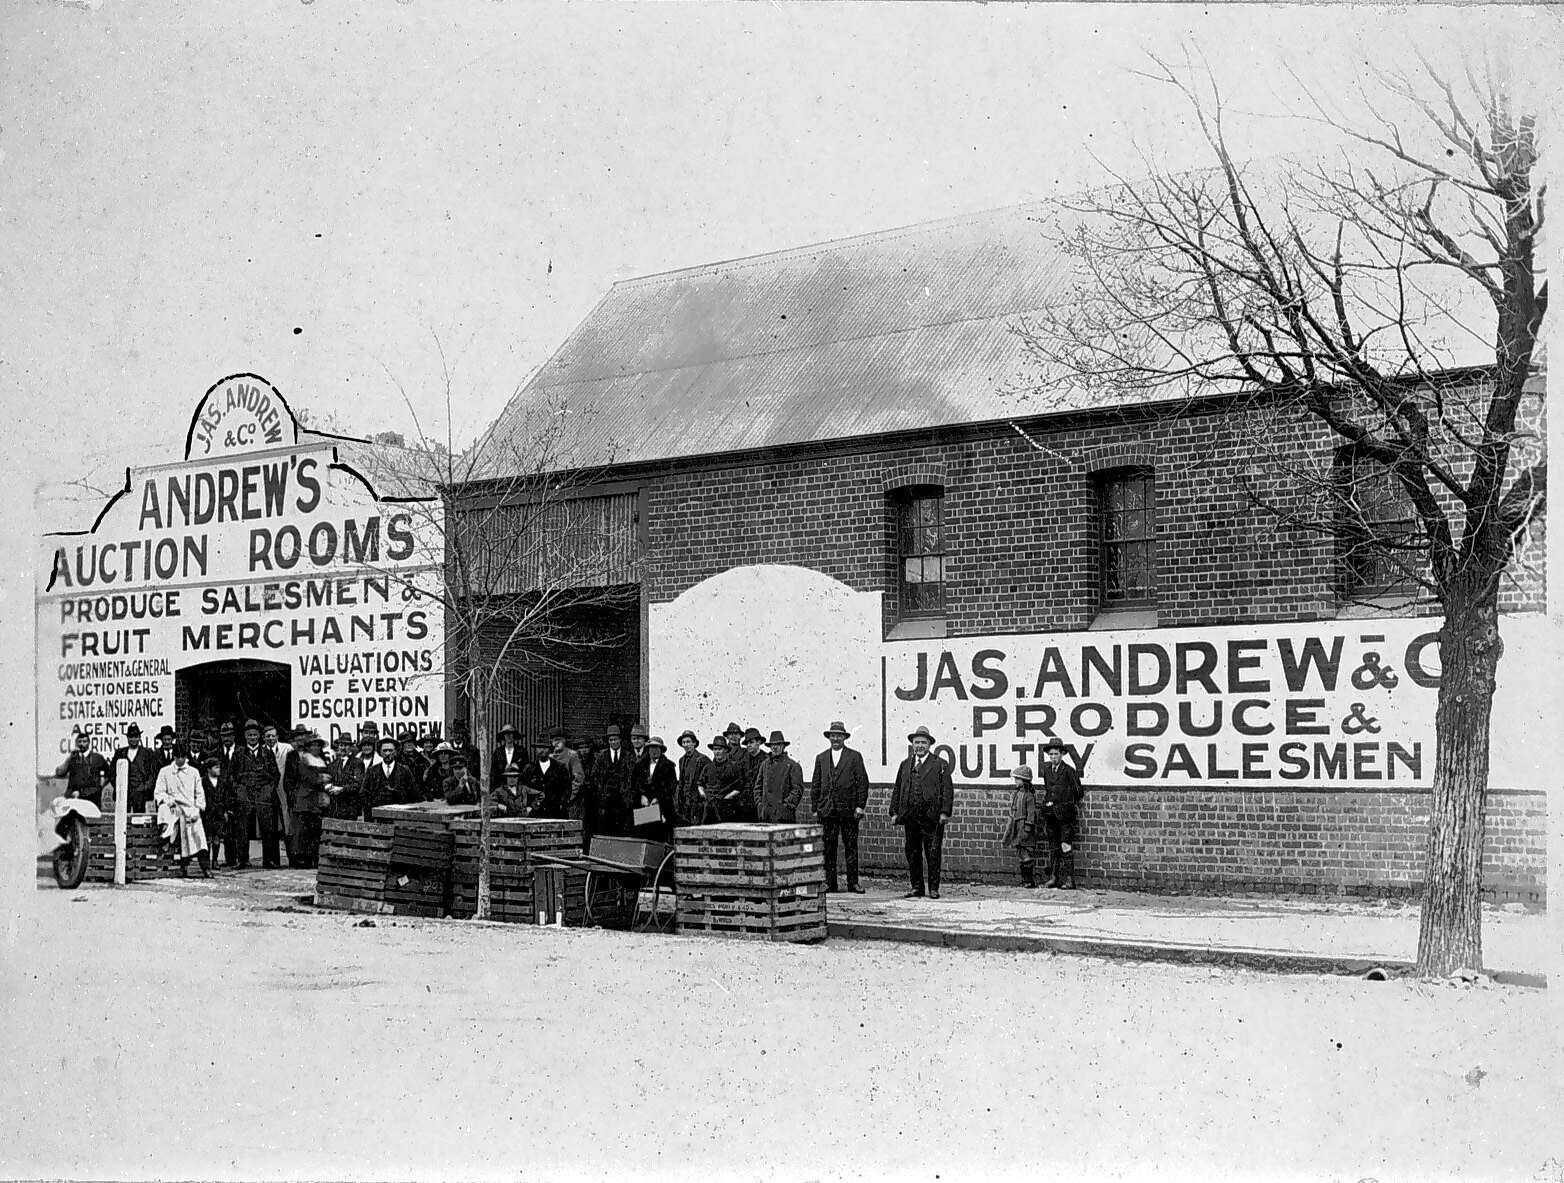 JAS. ANDREW
& Co.
ANDREW'S
AUCTION ROOMS
PRODUCE SALESMEN &
FRUIT MERCHANTS
GOVERNMENT & GENERAL
AUCTIONEERS
ESTATE & INSURANCE
AGENTS
CLEARING
VALUATIONS
OF EVERY
DESCRIPTION
ANDREW
JAS. ANDREW & C
PRODUCE &
POULTRY SALESMEN